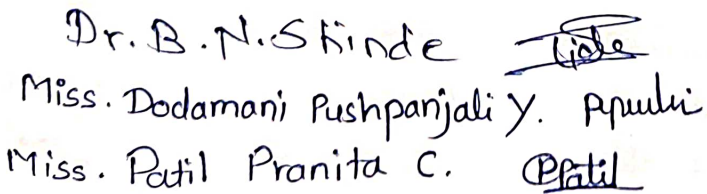 Dr. B. N. Shinde
Miss. Dodamani Pushpanjali Y.
Miss. Patil Pranita C. PPatil